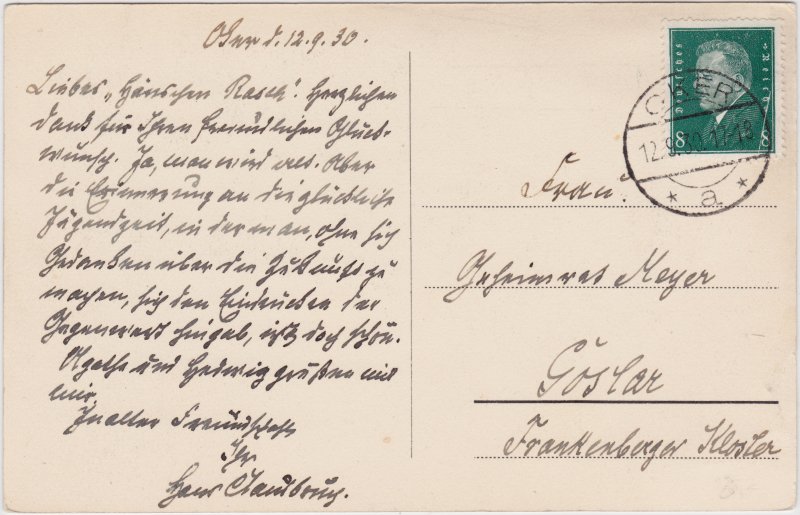 Oker d. 12.9.30.
Liebes „Hänschen Rasch“! Herzlichen
Dank für Ihren freundlichen Glück-
wunsch. Ja, man wird alt. Aber
die Erinnerung an die glückliche
Jugendzeit, in der man, ohne sich
Gedanken über die Zukunft zu
machen, sich den Eindrücken der
Gegenwart hingab, ist doch schön.
Agathe und Hedwig grüßen mit
mir.
In alter Freundschaft
Ihr
Hans
Deutsches Reich
8 8
OKER
12.9.30.17-18
* a *
Frau
Geheimrat Meyer
Goslar
Frankenberger Kloster